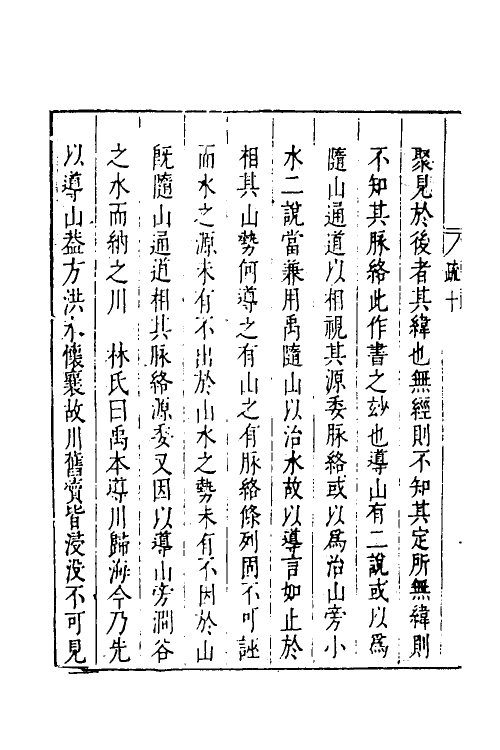 疏十
聚見於後者其緯也無經則不知其定所無緯則
不知其脉絡此作書之玅也導山有二說或以爲
隨山通道以相視其源委脉絡或以爲治山旁小
水二說當兼用禹隨山以治水故以導言如止於
相其山勢何導之有山之有脉絡條列固不可誣
而水之源未有不出於山水之勢未有不因於山
旣隨山通道相其脉絡源委又因以導山旁澗谷
之水而納之川　林氏曰禹本導川歸海今乃先
以導山葢方洪水懷襄故川舊瀆皆浸没不可見